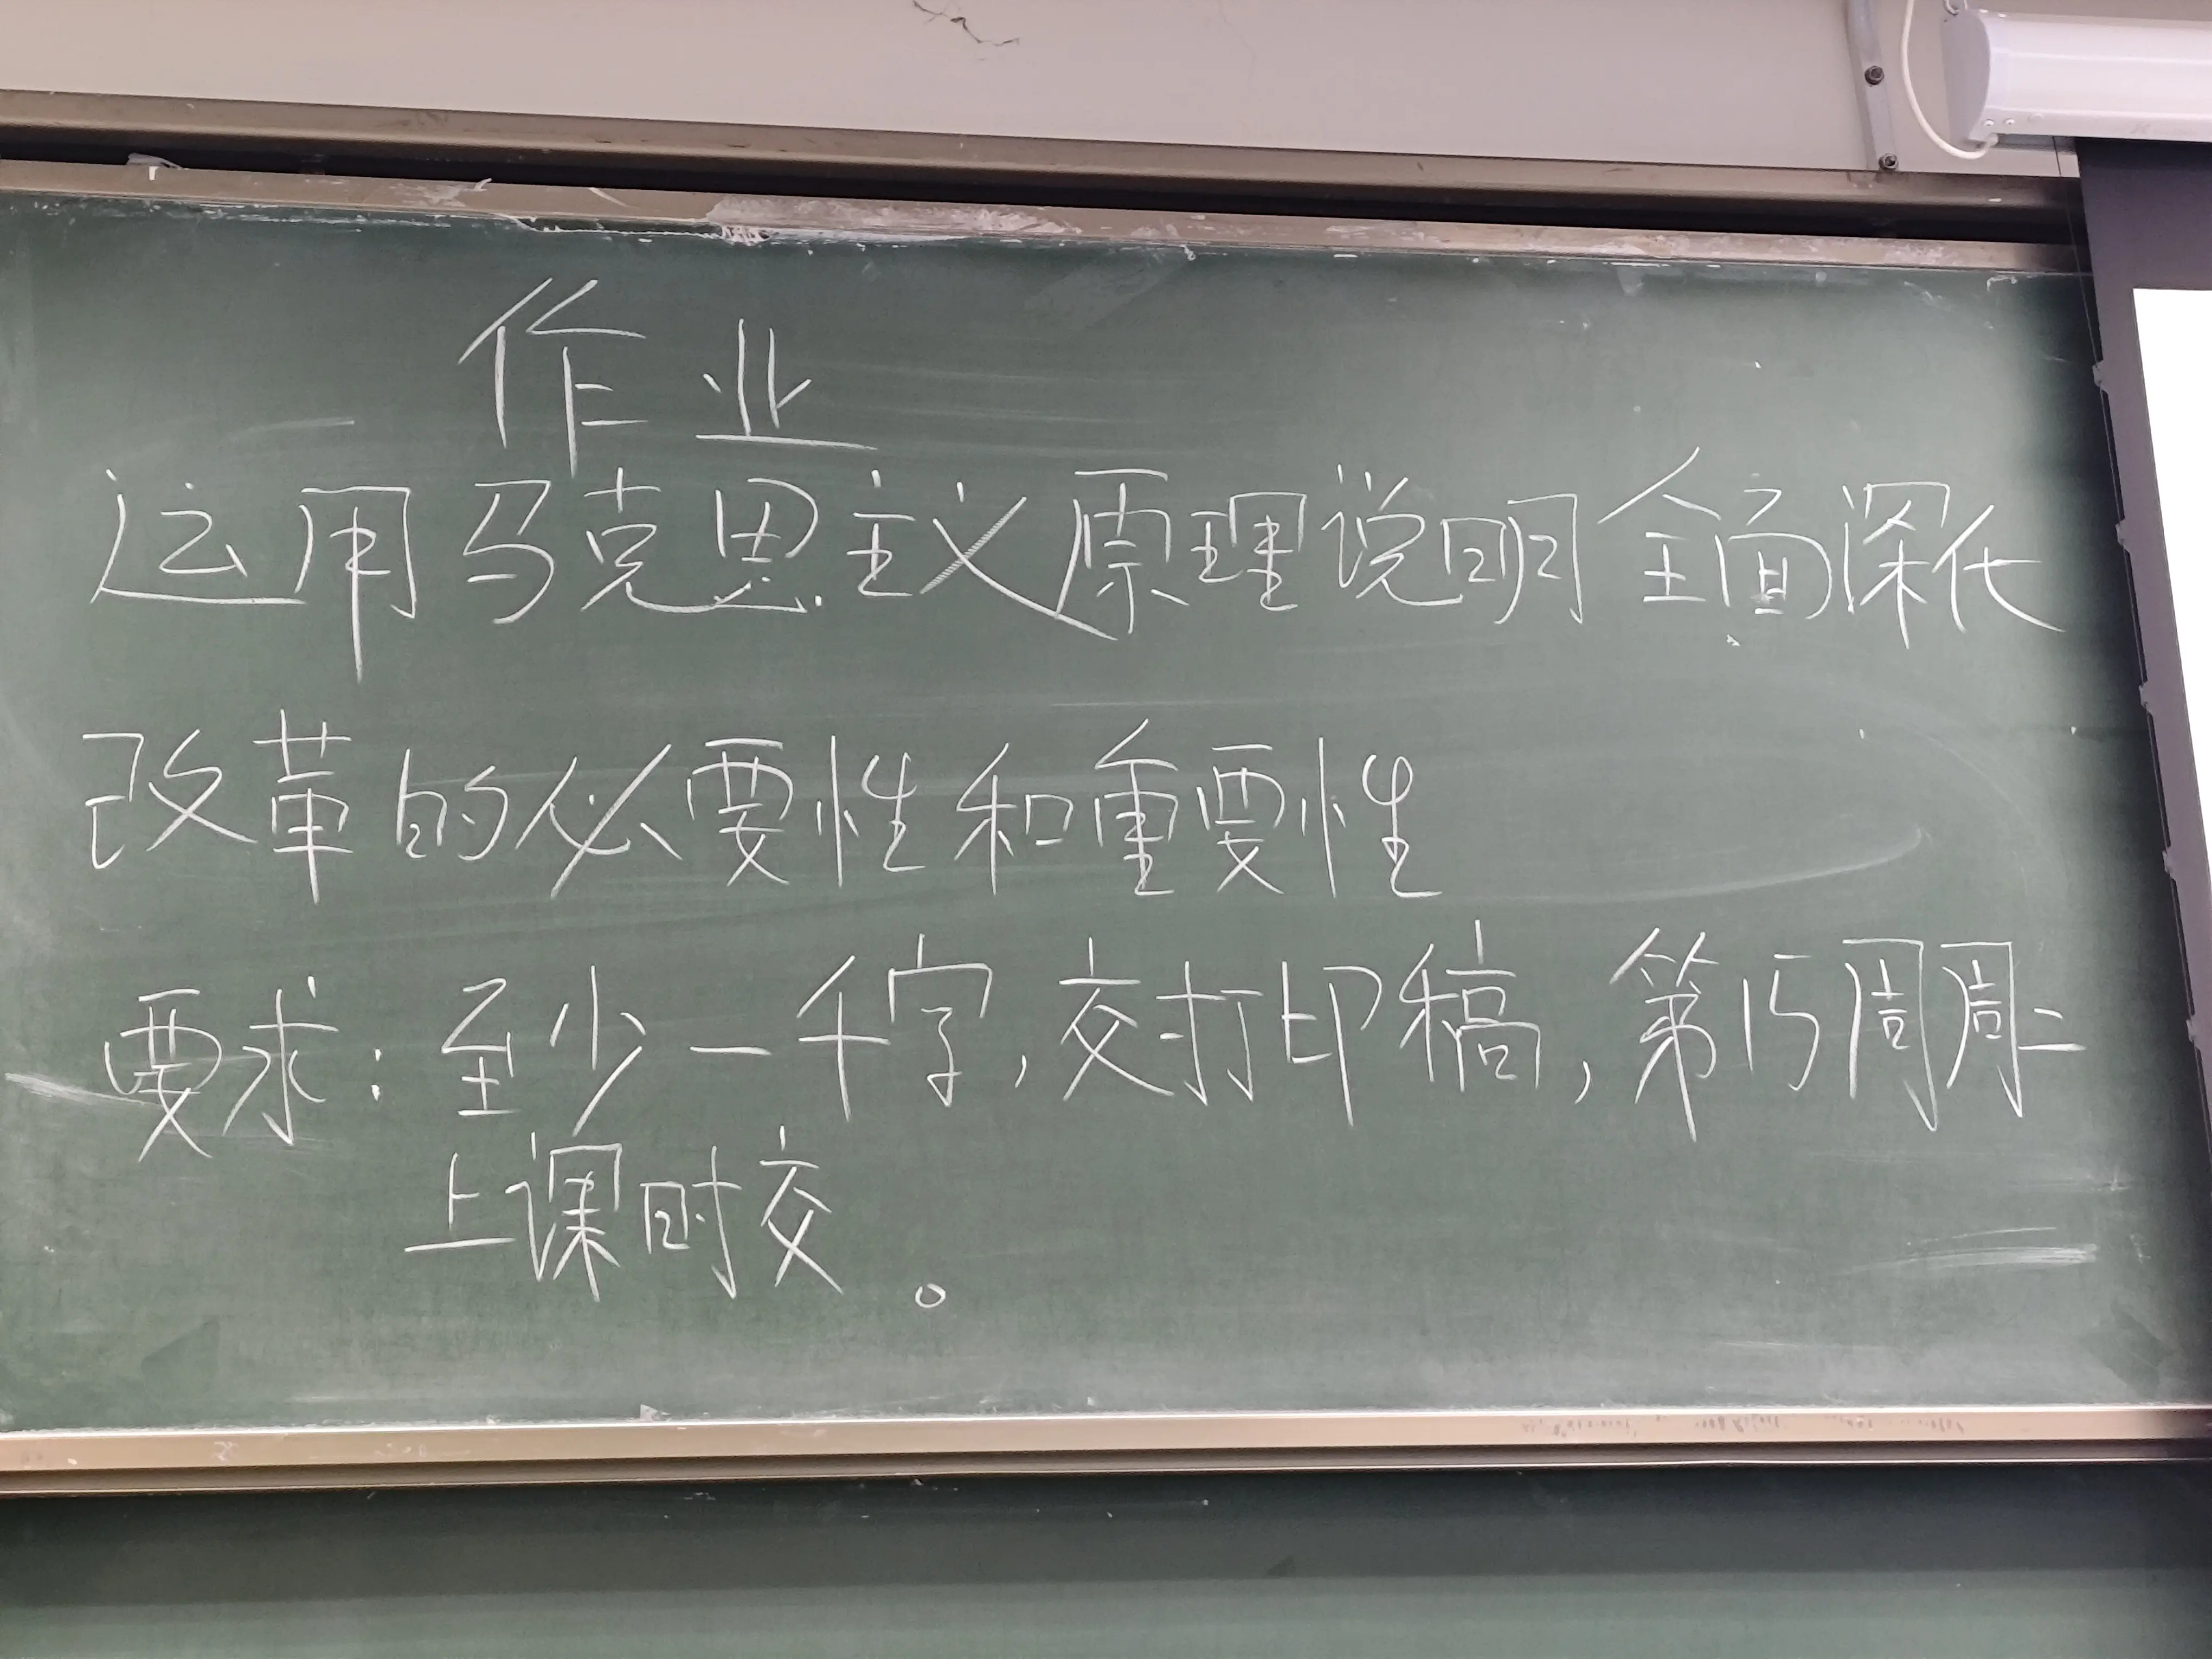 作业
运用马克思主义原理说明全面深化
改革的必要性和重要性
要求：至少一千字，交打印稿，第15周周二
上课时交。